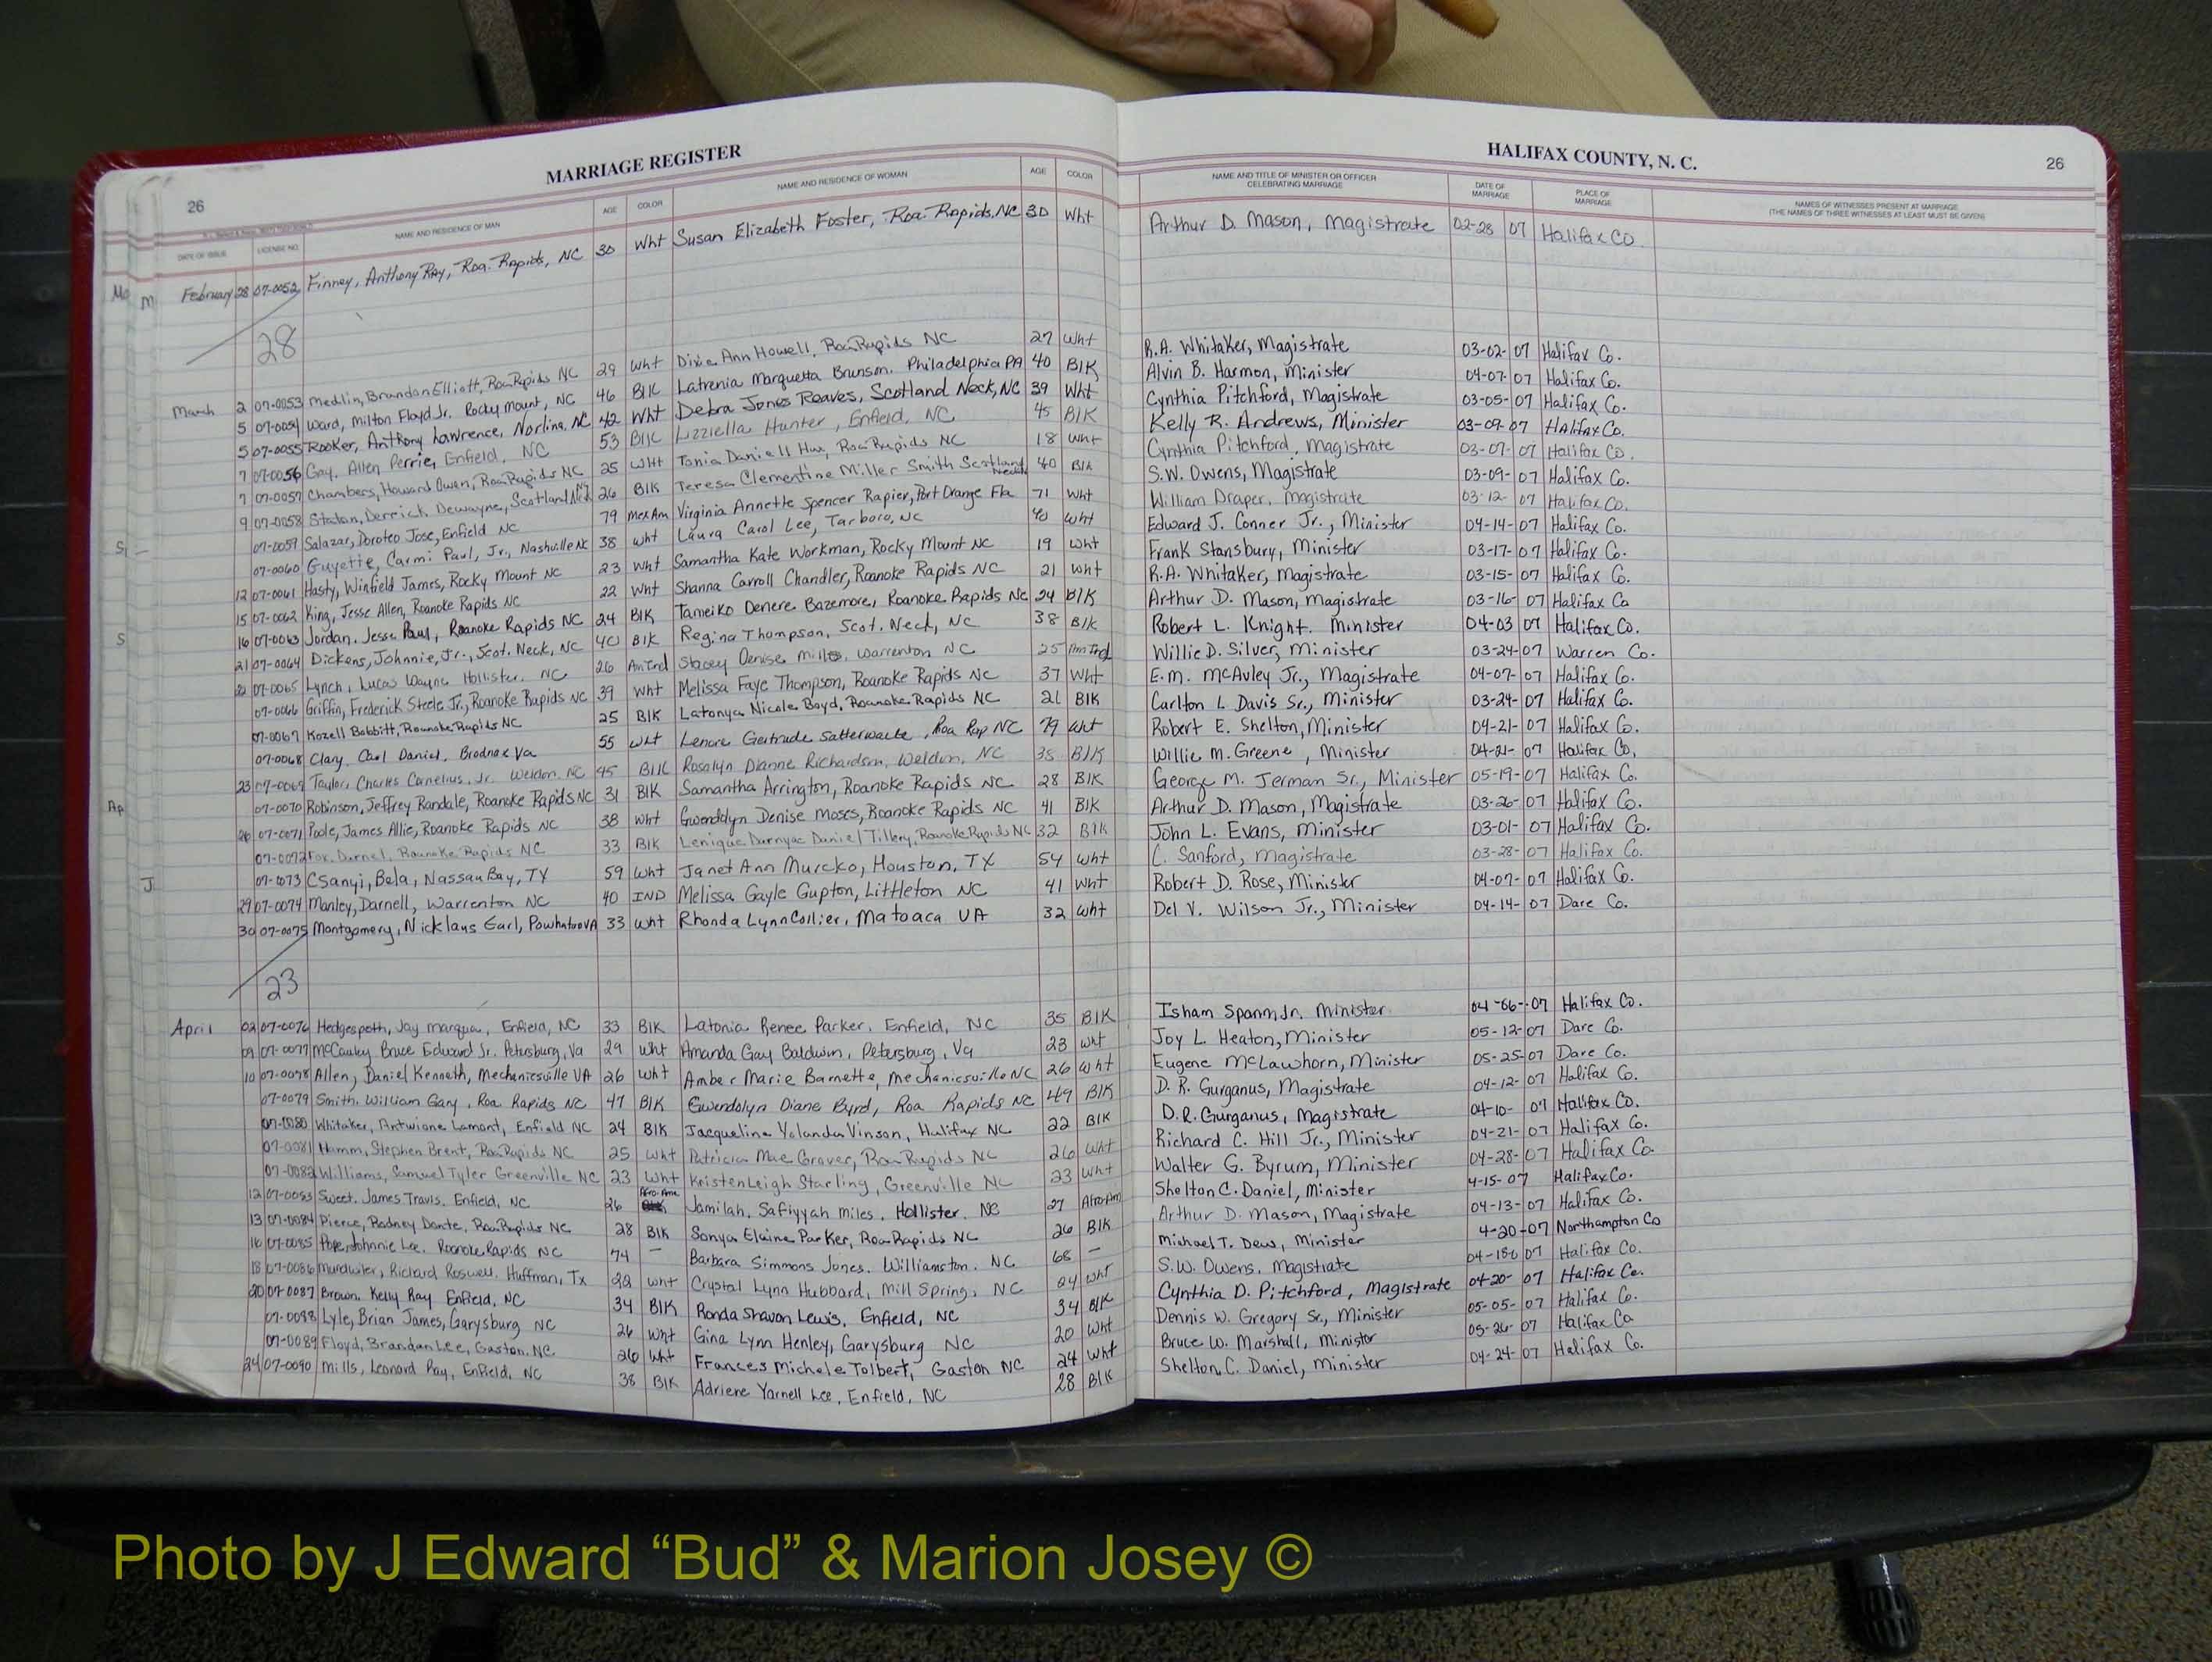 MARRIAGE REGISTER
HALIFAX COUNTY, N. C.
26
26
DATE OF ISSUE LICENSE NO. NAME AND RESIDENCE OF MAN AGE COLOR NAME AND RESIDENCE OF WOMAN AGE COLOR NAME AND TITLE OF MINISTER OR OFFICER CELEBRATING MARRIAGE DATE OF MARRIAGE PLACE OF MARRIAGE NAMES OF WITNESSES PRESENT AT MARRIAGE (THE NAMES OF THREE WITNESSES AT LEAST MUST BE GIVEN)
February 28 07-0052 Finney, Anthony Ray, Roa. Rapids, NC 30 Wht Susan Elizabeth Foster, Roa. Rapids, NC 30 Wht Arthur D. Mason, Magistrate 02-28 07 Halifax CO
28
March 2 07-0053 Medlin, Brandon Elliott, Roa Rapids NC 29 Wht Dixie Ann Howell, Roa Rapids NC 27 Wht R.A. Whitaker, Magistrate 03-02-07 Halifax Co.
5 07-0054 Ward, Milton Floyd Jr. Rocky Mount, NC 46 Blk Latrenia Marquetta Brunson. Philadelphia PA 40 Blk Alvin B. Harmon, Minister 04-07-07 Halifax Co.
5 07-0055 Rooker, Anthony Lawrence, Norlina, NC 42 Wht Debra Jones Reaves, Scotland Neck, NC 39 Wht Cynthia Pitchford, Magistrate 03-05-07 Halifax Co.
7 07-0056 Gay. Allen Perrie, Enfield, NC 53 Blk Lizziella Hunter, Enfield, NC 45 Blk Kelly R. Andrews, Minister 03-09-07 Halifax Co.
7 07-0057 Chambers, Howard Owen, Roa Rapids NC 25 Wht Tonia Daniell Hux, Roa Rapids NC 18 Wht Cynthia Pitchford, Magistrate 03-07-07 Halifax Co.
9 07-0058 Staton, Derrick Dewayne, Scotland Nck 26 Blk Teresa Clementine Miller Smith Scotland Neck 40 Blk S.W. Owens, Magistrate 03-09-07 Halifax Co.
07-0059 Salazar, Doroteo Jose, Enfield NC 79 Mex Am Virginia Annette Spencer Rapier, Port Orange Fla 71 Wht William Draper, Magistrate 03-12-07 Halifax Co.
07-0060 Guyette, Carmi Paul, Jr., Nashville NC 38 Wht Laura Carol Lee, Tarboro, NC 40 Wht Edward J. Conner Jr., Minister 04-14-07 Halifax Co.
12 07-0061 Hasty, Winfield James, Rocky Mount NC 23 Wht Samantha Kate Workman, Rocky Mount NC 19 Wht Frank Stansbury, Minister 03-17-07 Halifax Co.
15 07-0062 King, Jesse Allen, Roanoke Rapids NC 22 Wht Shanna Carroll Chandler, Roanoke Rapids NC 21 Wht R.A. Whitaker, Magistrate 03-15-07 Halifax Co.
16 07-0063 Jordan, Jesse Paul, Roanoke Rapids NC 24 Blk Tameiko Denere Bazemore, Roanoke Rapids NC 24 Blk Arthur D. Mason, Magistrate 03-16-07 Halifax Co
21 07-0064 Dickens, Johnnie, Jr., Scot. Neck, NC 40 Blk Regina Thompson, Scot. Neck, NC 38 Blk Robert L. Knight. Minister 04-03 07 Halifax Co.
22 07-0065 Lynch, Lucas Wayne Hollister, NC 26 Am Ind Stacey Denise Mills, Warrenton NC 25 Am Ind Willie D. Silver, Minister 03-24-07 Warren Co.
07-0066 Griffin, Frederick Steele Jr., Roanoke Rapids NC 39 Wht Melissa Faye Thompson, Roanoke Rapids NC 37 Wht E.M. McAvley Jr., Magistrate 04-07-07 Halifax Co.
07-0067 Kozell Bobbitt, Roanoke Rapids NC 25 Blk Latonya Nicole Boyd, Roanoke Rapids NC 21 Blk Carlton L Davis Sr., Minister 03-24-07 Halifax Co.
07-0068 Clary, Carl Daniel, Brodnax Va 55 Wht Lenore Gertrude Satterwaite, Roa Rap NC 79 Wht Robert E. Shelton, Minister 04-21-07 Halifax Co.
23 07-0069 Taylor, Charles Cornelius, Jr. Weldon, NC 45 Blk Rosalyn Dianne Richardson, Weldon, NC 35 Blk Willie M. Greene, Minister 04-21-07 Halifax Co,
07-0070 Robinson, Jeffrey Randale, Roanoke Rapids NC 31 Blk Samantha Arrington, Roanoke Rapids NC 28 Blk George M. Jerman Sr., Minister 05-19-07 Halifax Co.
26 07-0071 Poole, James Allie, Roanoke Rapids NC 38 Wht Gwendolyn Denise Moses, Roanoke Rapids NC 41 Blk Arthur D. Mason, Magistrate 03-26-07 Halifax Co.
07-0072 Fox, Darnel, Roanoke Rapids NC 33 Blk Daniel Tillery, Roanoke Rapids NC 32 Blk John L. Evans, Minister 03-01-07 Halifax Co.
07-1073 Csanyi, Bela, Nassau Bay, TX 59 Wht Janet Ann Murcko, Houston, TX 54 Wht C. Sanford, Magistrate 03-28-07 Halifax Co.
29 07-0074 Manley, Darnell, Warrenton NC 40 IND Melissa Gayle Gupton, Littleton NC 41 Wht Robert D. Rose, Minister 04-07-07 Halifax Co.
30 07-0075 Montgomery, Nicklaus Earl, Powhatan VA 33 Wht Rhonda Lynn Collier, Matoaca VA 32 Wht Del V. Wilson Jr., Minister 04-14-07 Dare Co.
23
April 02 07-0076 Hedgespeth, Jay Marqua, Enfield, NC 33 Blk Latonia Renee Parker, Enfield, NC 35 Blk Isham Spann, Jr. Minister 04-06-07 Halifax Co.
09 07-0077 McCauley Bruce Edward Jr. Petersburg, Va 29 Wht Amanda Gay Baldwin, Petersburg, Va 23 Wht Joy L. Heaton, Minister 05-12-07 Dare Co.
10 07-0078 Allen, Daniel Kenneth, Mechanicsville VA 26 Wht Amber Marie Barnette, Mechanicsville NC 26 Wht Eugene McLawhorn, Minister 05-25-07 Dare Co.
07-0079 Smith, William Gary, Roa. Rapids NC 47 Blk Gwendolyn Diane Byrd, Roa Rapids NC 49 Blk D. R. Gurganus, Magistrate 04-12-07 Halifax Co.
07-0080 Whitaker, Antwione Lamont, Enfield NC 24 Blk Jacqueline Yolanda Vinson, Halifax NC 22 Blk D.R. Gurganus, Magistrate 04-10-07 Halifax Co.
07-0081 Hamm, Stephen Brent, Roa Rapids NC 25 Wht Patricia Mae Grover, Roa Rapids NC 26 Wht Richard C. Hill Jr., Minister 04-21-07 Halifax Co.
07-0082 Williams, Samuel Tyler Greenville NC 23 Wht Kristen Leigh Starling, Greenville NC 23 Wht Walter G. Byrum, Minister 04-28-07 Halifax Co.
12 07-0083 Sweet, James Travis, Enfield, NC 26 Afro. Ame Jamilah, Safiyyah Miles, Hollister, NC 27 Afro Am Shelton C. Daniel, Minister 4-15-07 Halifax Co.
13 07-0084 Pierce, Rodney Donte, Roa Rapids NC 28 Blk Sonya Elaine Parker, Roa Rapids NC 26 Blk Arthur D. Mason, Magistrate 04-13-07 Halifax Co.
16 07-0085 Pope, Johnnie Lee, Roanoke Rapids NC 74 — Barbara Simmons Jones, Williamston, NC 68 — Michael T. Dew, Minister 4-20-07 Northampton Co
18 07-0086 Richard Roswell, Huffman, Tx 22 Wht Crystal Lynn Hubbard, Mill Spring, NC 24 Wht S.W. Owens, Magistrate 04-18-07 Halifax Co.
20 07-0087 Brown, Kelly Ray Enfield, NC 34 Blk Ronda Shavon Lewis, Enfield, NC 34 Blk Cynthia D. Pitchford, Magistrate 04-20-07 Halifax Co.
07-0088 Lyle, Brian James, Garysburg NC 26 Wht Gina Lynn Henley, Garysburg NC 20 Wht Dennis W. Gregory Sr., Minister 05-05-07 Halifax Co.
07-0089 Floyd, Brandon Lee, Gaston, NC 26 Wht Frances Michele Tolbert, Gaston NC 24 Wht Bruce W. Marshall, Minister 05-26-07 Halifax Co
24 07-0090 Mills, Leonard Ray, Enfield, NC 38 Blk Adriene Yarnell Lee, Enfield, NC 28 Blk Shelton C. Daniel, Minister 04-24-07 Halifax Co.
Photo by J Edward “Bud” & Marion Josey ©